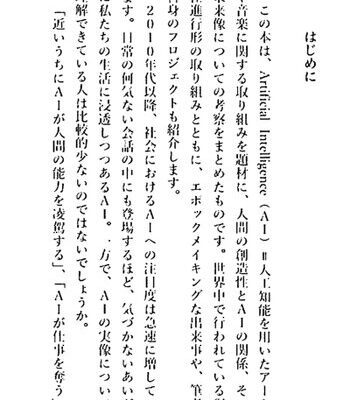 はじめに
この本は、Artificial Intelligence（AI）＝人工知能を用いたアー
や音楽に関する取り組みを題材に、人間の創造性とAIの関係、そ
未来像についての考察をまとめたものです。世界中で行われている
在進行形の取り組みとともに、エポックメイキングな出来事や、筆者
自身のプロジェクトも紹介します。
2010年代以降、社会におけるAIへの注目度は急速に増して
ます。日常の何気ない会話の中にも登場するほど、気づかないあい
に私たちの生活に浸透しつつあるAI。一方で、AIの実像につい
理解できている人は比較的少ないのではないでしょうか。
「近いうちにAIが人間の能力を凌駕する」、「AIが仕事を奪う」